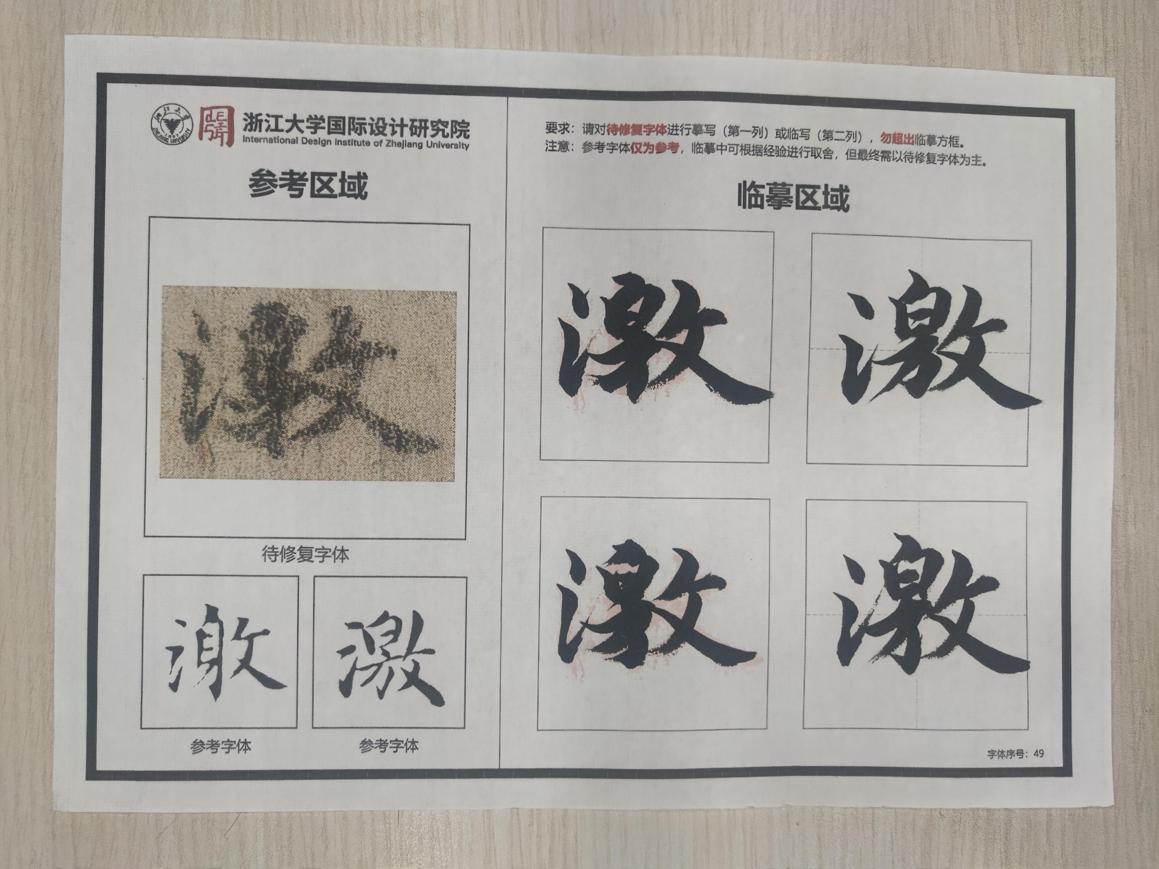 浙江大学国际设计研究院
International Design Institute of Zhejiang University
参考区域
激
待修复字体
激 激
参考字体 参考字体
要求：请对待修复字体进行摹写（第一列）或临写（第二列），勿超出临摹方框。
注意：参考字体仅为参考，临摹中可根据经验进行取舍，但最终需以待修复字体为主。
临摹区域
激 激
激 激
字体序号：49